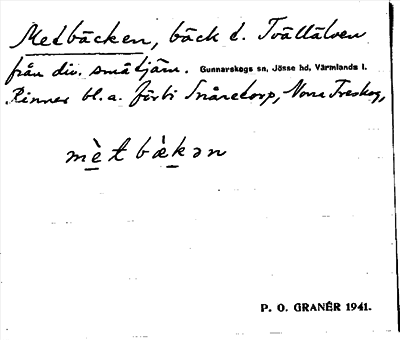 Metbäcken, bäck t. Tvällälven
från div. små tjärn. Gunnarskogs sn, Jösse hd, Värmlands l.
Rinner bl. a. förbi Snåretorp, Norra Treskog,
mè̱t bæ̀ḵən
P. O. GRANÉR 1941.